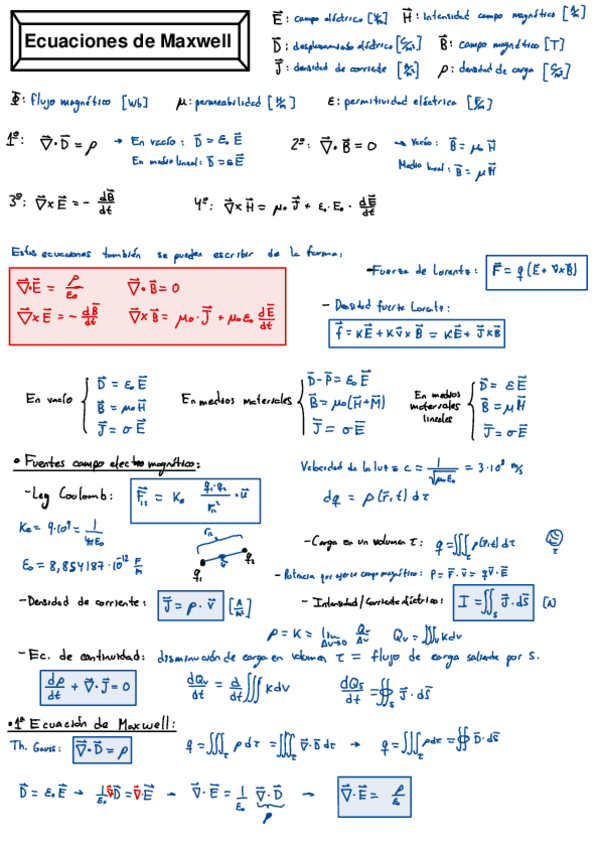 Ecuaciones de Maxwell
E⃗: campo eléctrico [V/m] H⃗: Intensidad campo magnético [A/m]
D⃗: desplazamiento eléctrico [C/m²] B⃗: campo magnético [T]
J⃗: densidad de corriente [A/m²] ρ: densidad de carga [C/m³]
Φ: flujo magnético [Wb] μ: permeabilidad [H/m] ε: permitividad eléctrica [F/m]
1º: ∇⃗·D⃗ = ρ → En vacío: D⃗ = ε₀ E⃗ 2º: ∇⃗·B⃗ = 0 → Vacío: B⃗ = μ₀ H⃗
En medio lineal: D⃗ = εE⃗ Medio lineal: B⃗ = μH⃗
3º: ∇⃗×E⃗ = - dB⃗/dt 4º: ∇⃗×H⃗ = μ₀ J⃗ + ε₀·E₀· dE⃗/dt
Estas ecuaciones también se pueden escribir de la forma:
∇⃗·E⃗ = ρ/ε₀ ∇⃗·B⃗ = 0
∇⃗×E⃗ = - dB⃗/dt ∇⃗×B⃗ = μ₀·J⃗ + μ₀ε₀ dE⃗/dt
-Fuerza de Lorentz: F⃗ = q(E⃗ + v⃗×B⃗)
- Densidad fuerza Lorentz:
f⃗ = κE⃗ + κv⃗×B⃗ = κE⃗ + J⃗×B⃗
En vacío { D⃗ = ε₀E⃗ B⃗ = μ₀H⃗ J⃗ = σE⃗
En medios materiales { D⃗-P⃗ = ε₀E⃗ B⃗ = μ₀(H⃗+M⃗) J⃗ = σE⃗
En medios materiales lineales { D⃗ = εE⃗ B⃗ = μH⃗ J⃗ = σE⃗
• Fuentes campo electromagnético:
Velocidad de la luz = c = 1/√(μ₀ε₀) = 3·10⁸ m/s
-Ley Coulomb: F⃗₁₂ = Ke q₁·q₂/r₁₂² ·u⃗
dq = ρ(r⃗,t) dτ
Ke = 9·10⁹ = 1/4πε₀
r₁₂
q₁ q₂
ε₀ = 8,854187·10⁻¹² F/m
-Carga en un volumen τ: q = ∭τ ρ(r⃗,t) dτ
τ
- Potencia que ejerce campo magnético: P = F⃗·v⃗ = qv⃗·E⃗
-Densidad de corriente: J⃗ = ρ·v⃗ [A/m²]
- Intensidad/Corriente eléctrica: I = ∬s J⃗·dS⃗ [A]
ρ = K = lim Δv→0 Qv/Δv Qv = ∭ kdv
- Ec. de continuidad: disminución de carga en volumen τ = flujo de carga saliente por S.
dρ/dt + ∇⃗·J⃗ = 0 dQv/dt = d/dt ∭ kdv dQs/dt = ∯s J⃗·dS⃗
• 1ª Ecuación de Maxwell:
Th. Gauss: ∇⃗·D⃗ = ρ q = ∭τ ρdτ = ∭τ ∇⃗·D⃗ dτ → q = ∭τ ρdτ = ∯ D⃗·dS⃗
D⃗ = ε₀E⃗ → 1/ε₀ ∇⃗D⃗ = ∇⃗·E⃗ → ∇⃗·E⃗ = 1/ε₀ ∇⃗·D⃗ → ∇⃗·E⃗ = ρ/ε₀
ρ